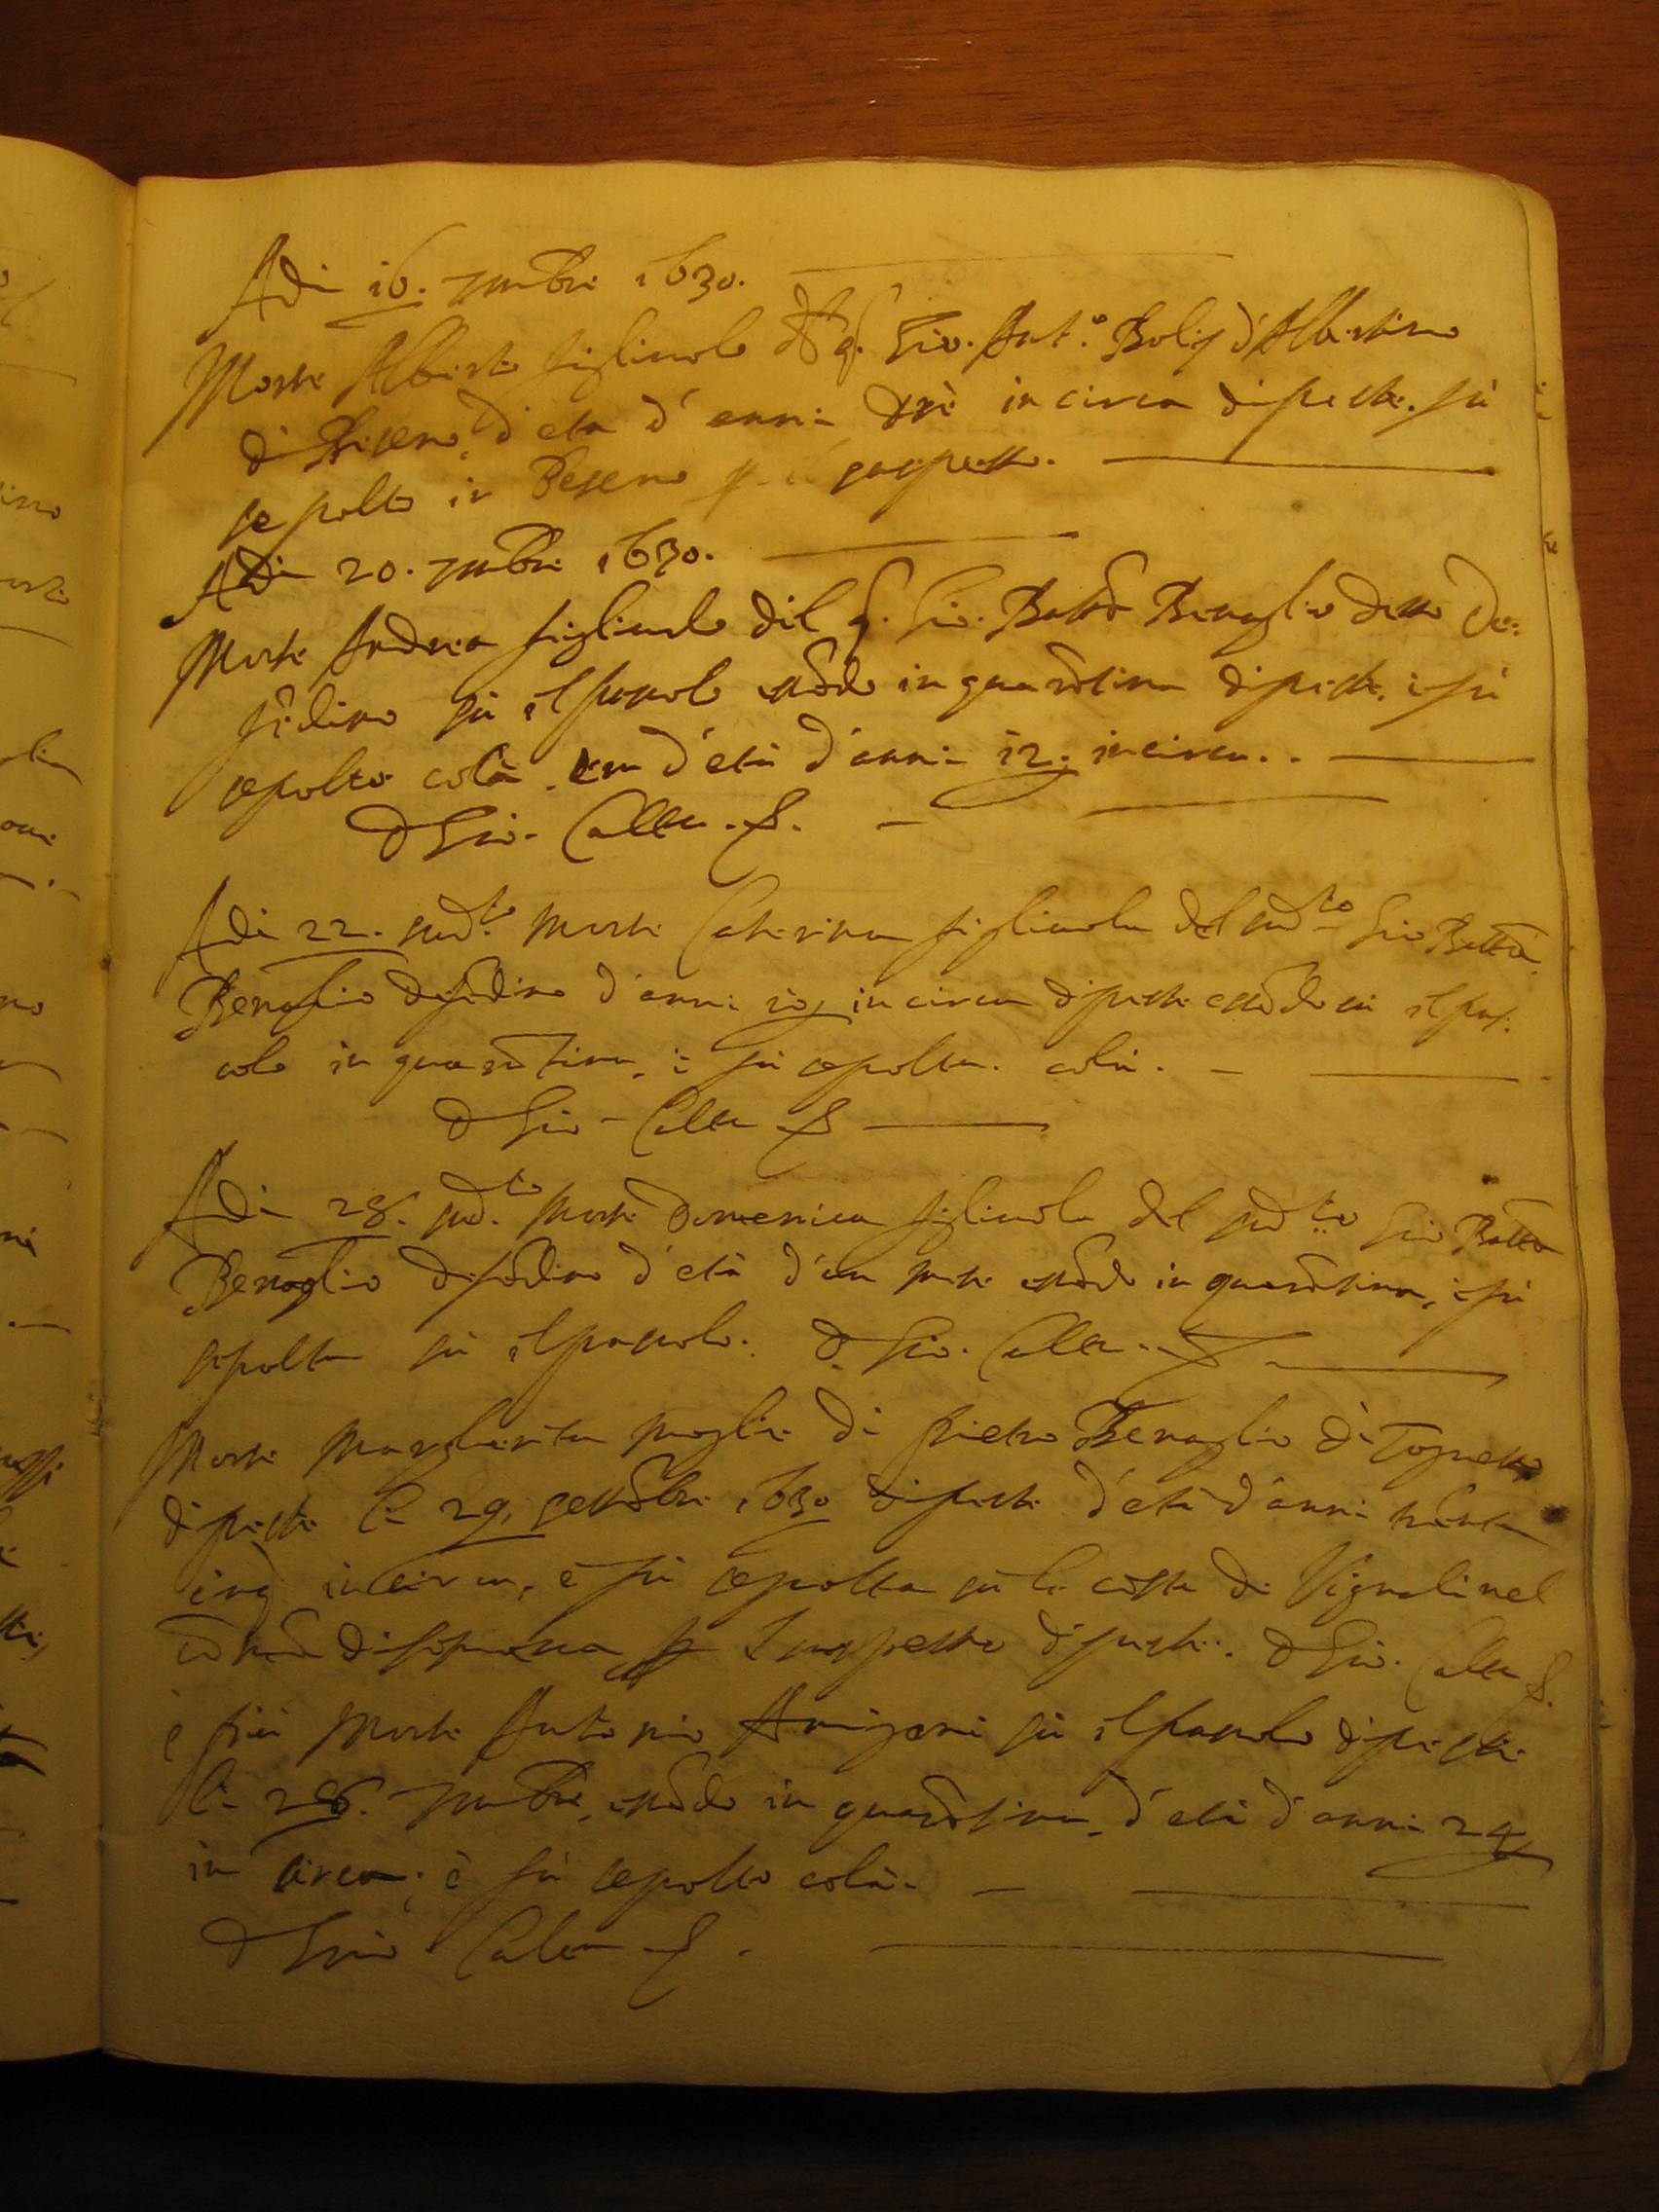 Adi 16. 7mbre 1630.
Morse Alberto figliuolo d q. Gio. Ant.o Bolis d'Albertino
di Beseno, d'eta d'anni tre in circa di peste. fù
sepolto in Beseno p il sospetto.
Adi 20. 7mbre 1630.
Morse Andrea figliuolo del q. Gio. Batta Benaglio detto De:
fẽdino sù il pascolo essẽdo in quarãtina di peste, e fù
sepolto colà era d'età d'anni 12. incirca..
D Gio. Calla. S.
Adi 22. sud.to morse Caterina figliuola del sud.to Gio Batta
Benaglio defẽdino d'anni in circa di peste essẽdo sù il pas:
colo in quarãtina, e fù sepolta. colà.
D Gio Calla S
Adi 28. sud.to morse Domenica figliuola del sud.to Gio Batta
Benaglio defẽdino d'età d'un mese essẽdo in quarãtina, e fù
sepolta sù il pascolo. D Gio. Calla. S
Morse Margherita moglie di Pietro Benaglio di Tognetto
di peste li 29. settẽbre 1630 di peste d'età d'anni trẽta
cinq incirca, e fù sepolta sù la costa di Vignali nel
di sospetto di peste. D Gio. Calla S.
e più morse Antonio Arrigoni sù il pascolo di peste
li 28. 7mbre, essẽdo in quarãtina, d'età d'anni 24
in circa; è fù sepolto colà.
D Gio Calla S.